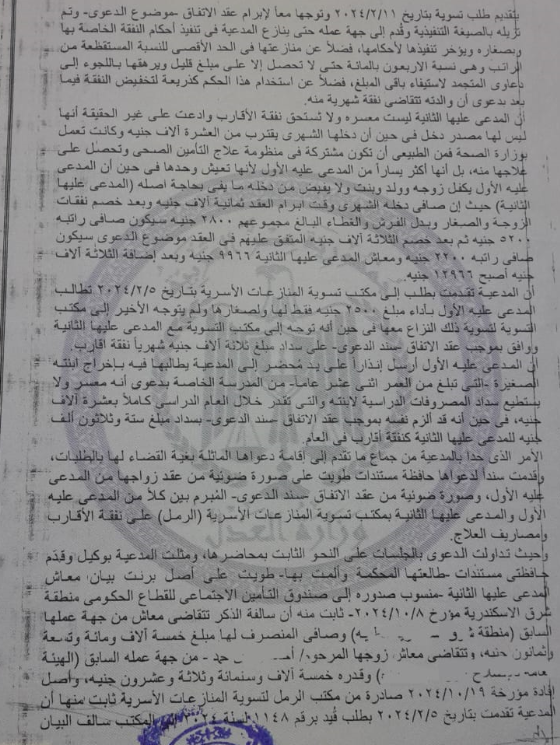 بتقديم طلب تسوية بتاريخ ٢٠٢٤/٢/١١ وتوجها معاً لإبرام عقد الاتفاق -موضوع الدعوى- وتم
تزيله بالصيغة التنفيذية وقُدم إلى جهة عمله حتى ينازع المدعية في تنفيذ أحكام النفقة الخاصة بها
وبصغاره ويؤخر تنفيذها لأحكامها، فضلاً عن منازعتها في الحد الأقصى للنسبة المستقطعة من
الراتب وهى نسبة الاربعون بالمائة حتى لا تحصل إلا على مبلغ قليل ويرهقها باللجوء إلى
دعاوى المتجمد لاستيفاء باقى المبلغ، فضلاً عن استخدام هذا الحكم كذريعة لتخفيض النفقة فيما
بعد بدعوى أن والدته تتقاضى نفقة شهرية منه.
أن المدعى عليها الثانية ليست معسره ولا تستحق نفقة الأقارب وادعت على غير الحقيقة أنها
ليس لها مصدر دخل في حين أن دخلها الشهرى يقترب من العشرة آلاف جنيه وكانت تعمل
بوزارة الصحة فمن الطبيعى أن تكون مشتركة في منظومة علاج التأمين الصحى وتحصل على
علاجها منه، بل أنها أكثر يساراً من المدعى عليه الأول لأنها تعيش وحدها في حين أن المدعى
عليه الأول يكفل زوجه وولد وبنت ولا يفيض من دخله ما يفى بحاجة اصله (المدعى عليها
الثانية) حيث إن صافى دخله الشهرى وقت ابرام العقد ثمانية آلاف جنيه وبعد خصم نفقات
الزوجة والصغار وبدل الفرش والغطاء البالغ مجموعهم ٢٨٠٠ جنيه سيكون صافى راتبه
٥٢٠٠ جنيه ثم بعد خصم الثلاثة آلاف جنيه المتفق عليهم في العقد موضوع الدعوى سيكون
صافى راتبه ٢٢٠٠ جنيه ومعاش المدعى عليها الثانية ٩٩٦٦ جنيه وبعد إضافة الثلاثة آلاف
جنيه أصبح ١٢٩٦٦ جنيه.
أن المدعية تقدمت بطلب إلى مكتب تسوية المنازعات الأسرية بتاريخ ٢٠٢٤/٢/٥ تطالب
المدعى عليه الأول بأداء مبلغ ٢٥٠٠ جنيه فقط لها ولصغارها ولم يتوجه الأخير إلى مكتب
التسوية لتسوية ذلك النزاع معها في حين أنه توجه إلى مكتب التسوية مع المدعى عليها الثانية
ووافق بموجب عقد الاتفاق -سند الدعوى- على سداد مبلغ ثلاثة آلاف جنيه شهرياً نفقة أقارب.
أن المدعى عليه الأول أرسل إنذاراً على يد مُحضر إلى المدعية يطالبها فيه بإخراج ابنته
الصغيرة -التي تبلغ من العمر اثنى عشر عاما- من المدرسة الخاصة بدعوى أنه معسر ولا
يستطيع سداد المصروفات الدراسية لابنته والتى تقدر خلال العام الدراسى كاملاً بعشرة آلاف
جنيه، في حين أنه قد ألزم نفسه بموجب عقد الاتفاق -سند الدعوى- بسداد مبلغ ستة وثلاثون ألف
جنيه للمدعى عليها الثانية كنفقة أقارب في العام.
الأمر الذى حدا بالمدعية من جماع ما تقدم إلى أقامة دعواها الماثلة بغية القضاء لها بالطلبات،
وقدمت سنداً لدعواها حافظة مستندات طويت على صورة ضوئية من عقد زواجها من المدعى
عليه الأول، وصورة ضوئية من عقد الاتفاق -سند الدعوى- المُبرم بين كلاً من المدعى عليه
الأول والمدعى عليها الثانية بمكتب تسوية المنازعات الأسرية (الرمل) على نفقة الأقارب
ومصاريف العلاج.
وحيث تداولت الدعوى بالجلسات على النحو الثابت بمحاضرها، ومثلت المدعية بوكيل وقدم
حافظتى مستندات -طالعتها المحكمة وألمت بها- طويت على أصل برنت بيان معاش
المدعى عليها الثانية -منسوب صدوره إلى صندوق التأمين الاجتماعى للقطاع الحكومى منطقة
شرق الاسكندرية مؤرخ ٢٠٢٤/١٠/٨- ثابت منه أن سالفة الذكر تتقاضى معاش من جهة عملها
السابق (منطقة وصافى المنصرف لها مبلغ خمسة آلاف ومائة وتسعة
وثمانون جنيه، وتتقاضى معاش زوجها المرحوم/ من جهة عمله السابق (الهيئة
وقدره خمسة آلاف وستمائة وثلاثة وعشرون جنيه، وأصل
إفادة مؤرخة ٢٠٢٤/١٠/١٩ صادرة من مكتب الرمل لتسوية المنازعات الأسرية ثابت منها أن
المدعية تقدمت بتاريخ ٢٠٢٤/٢/٥ بطلب قُيد برقم ١١٤٨ لسنة ٢٠٢٤ إلى المكتب سالف البيان
وزارة العدل